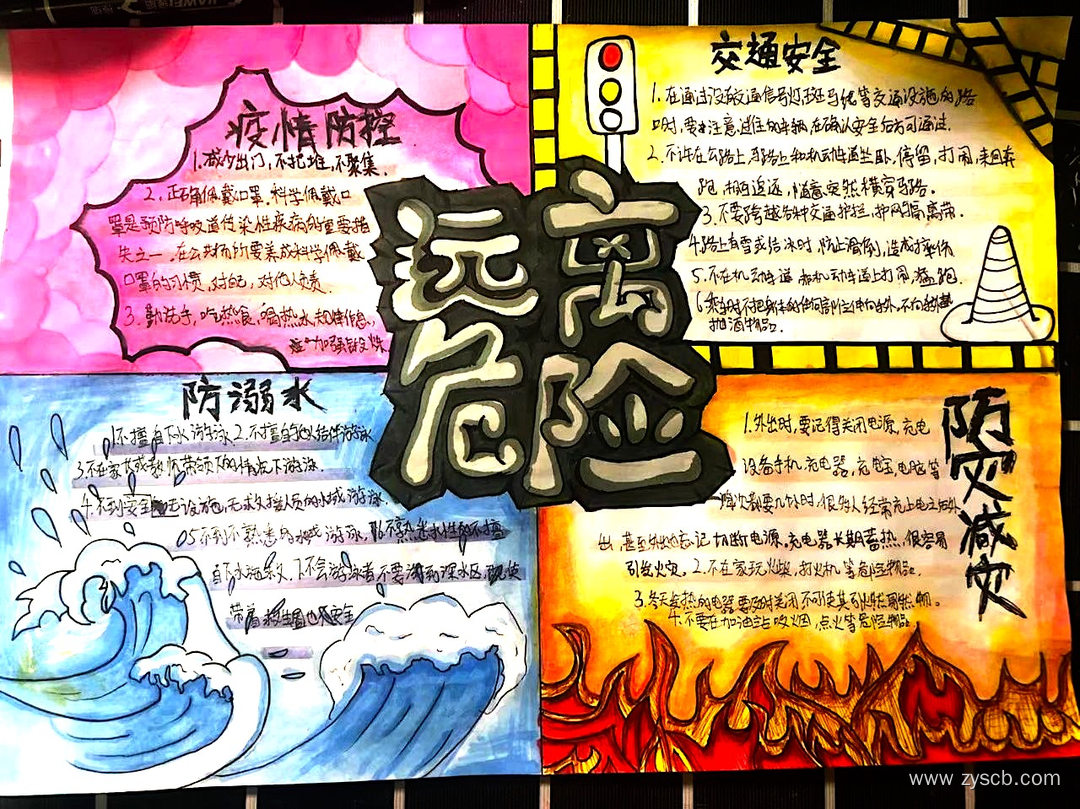 远离
危险
疫情防控
1.减少出门,不扎堆,不聚集.
2.正确佩戴口罩,科学佩戴口
罩是预防呼吸道传染性疾病的重要措
失之一,在公共场所要养成科学佩戴
口罩的习惯,对自己,对他人负责.
3.勤洗手,吃热食,喝热水,
加强锻炼.
交通安全
1.在通过没有交通信号灯,斑马线等交通设施的路
口时,要注意过往的车辆,在确认安全后方可通过.
2.不许在公路上,马路上和机动车道坐卧,停留,打闹,来回奔
跑,相互追逐,随意突然横穿马路.
3.不要跨越各种交通护栏,护网隔离带.
4.路上有雪或结冰时,防止滑倒,造成摔伤
5.不在机动车道,非机动车道上打闹,猛跑.
6.乘车时不把身体的任何部位伸出窗外,不向
抛洒物品.
防溺水
1.不擅自下水游泳2.不擅自与他人结伴游泳
3.不在家长或教师带领下的情况下游泳.
4.不到安全设施,无救援人员的水域游泳.
5.不到不熟悉的水域游泳,6.不熟悉水性的不擅
自下水施救.7.不会游泳者不要游到深水区,即使
带着救生圈也不安全
防灾减灾
1.外出时,要记得关闭电源,充电
设备手机充电器,充电宝,电脑等
每次都要几小时,很多人经常充上电之后外
出,甚至外出忘记切断电源,充电器长期蓄热,很容易
引发火灾.2.不在家玩火柴,打火机等危险物品.
3.冬天发热的电器要及时关闭不可使其引燃周围物.
4.不要在加油站吸烟,点火等危险物品.
www.zyscb.com